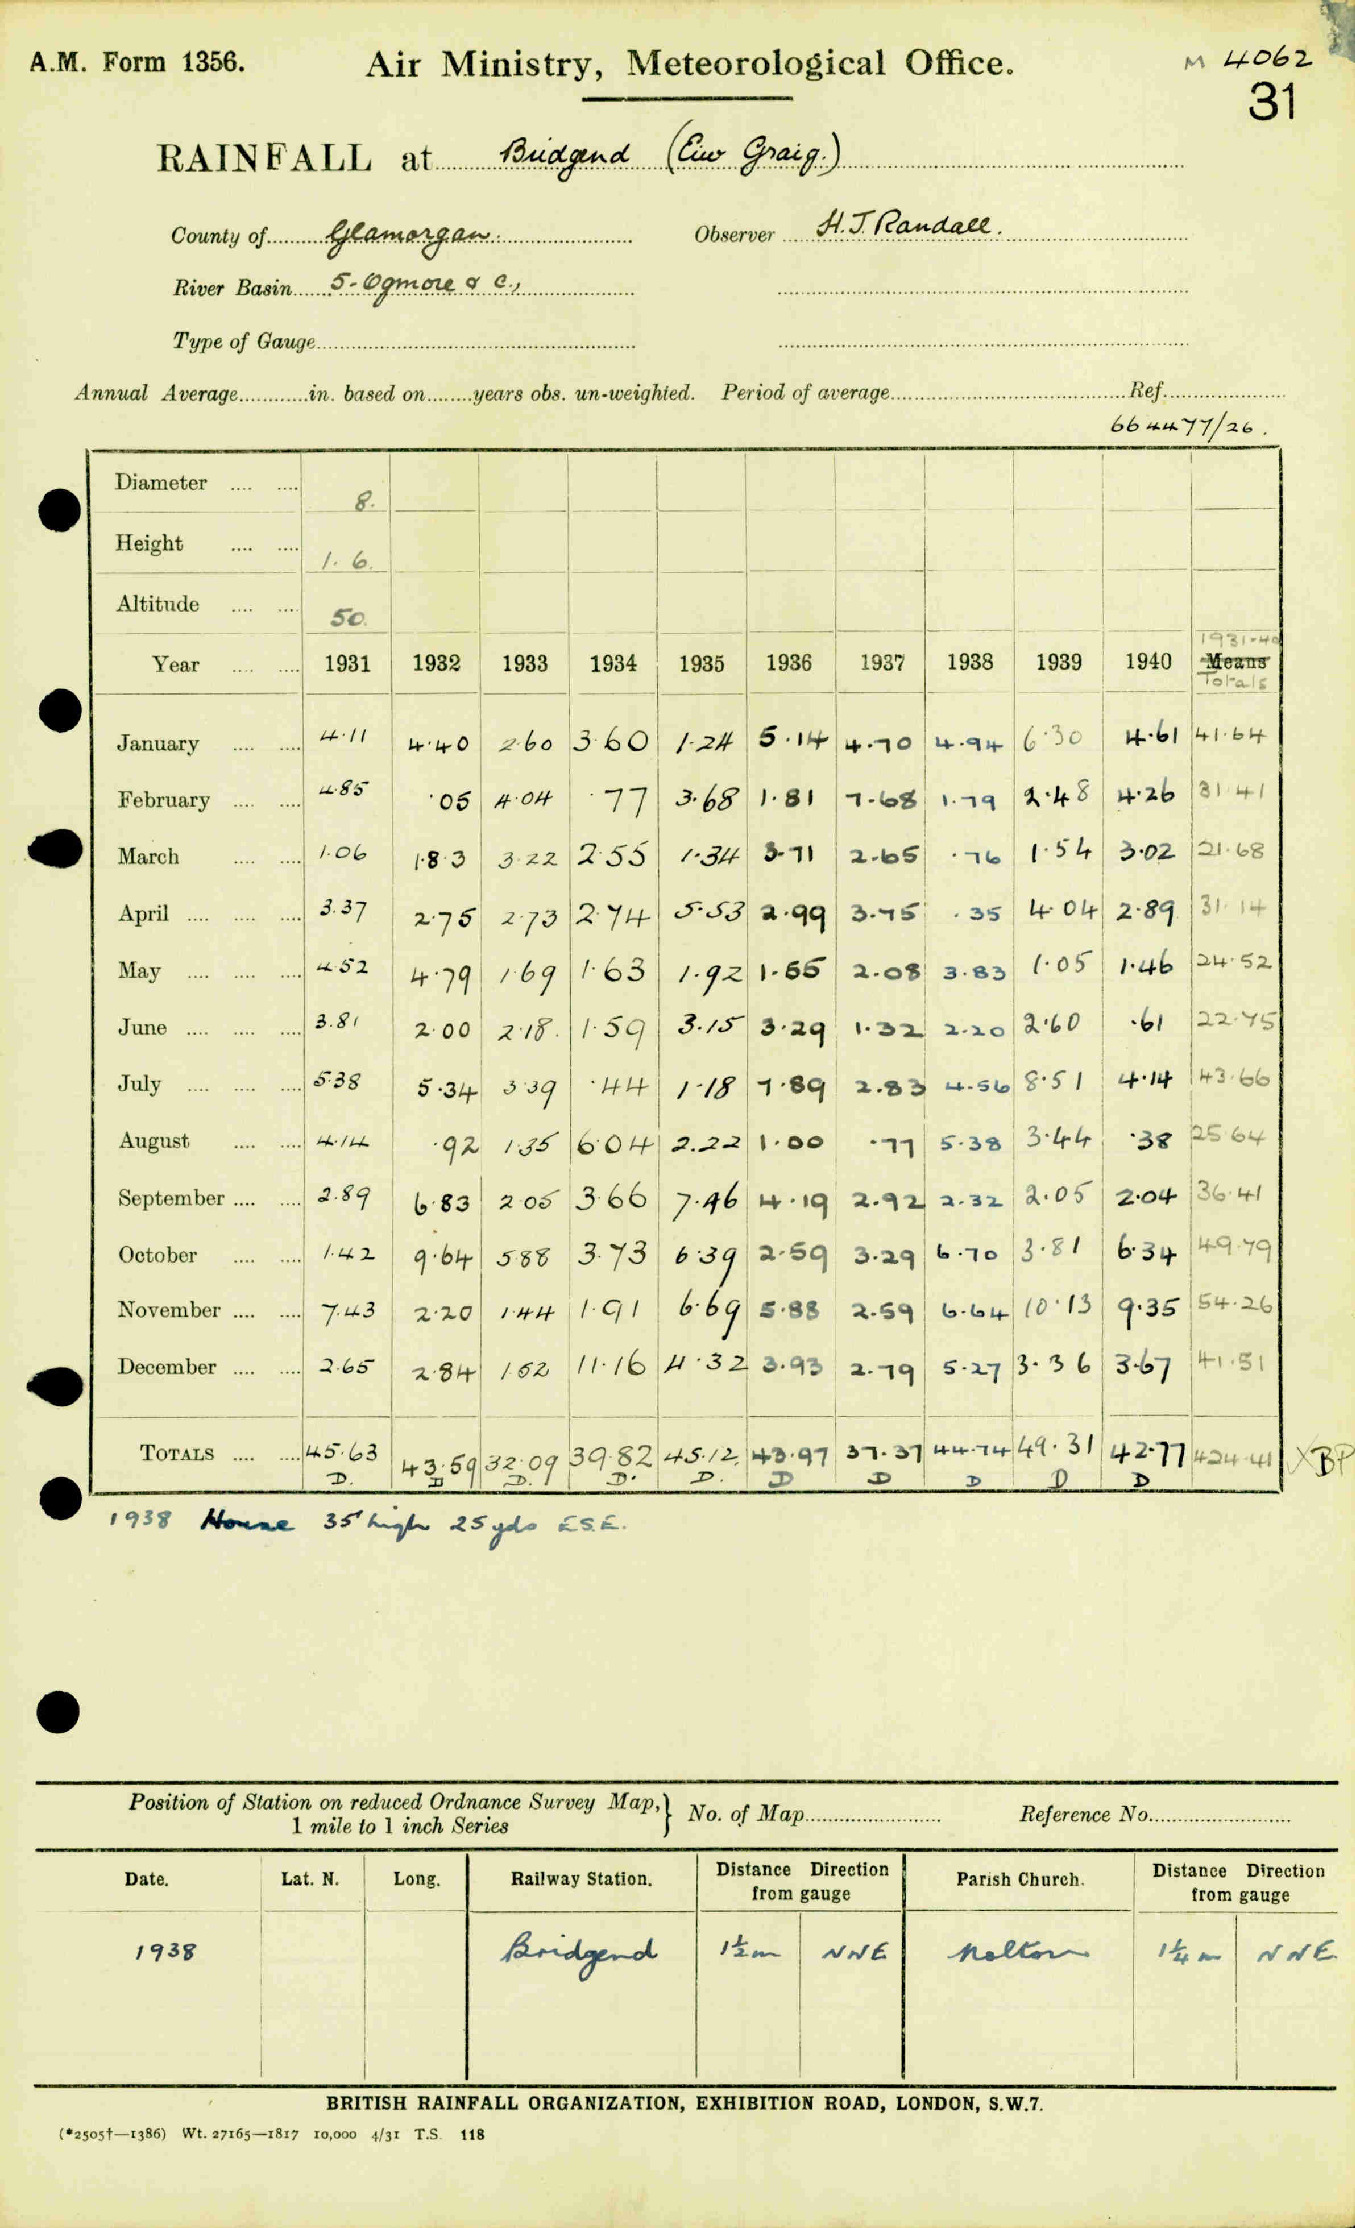 A.M. Form 1356. Air Ministry, Meteorological Office. M 4062
31
RAINFALL at Bridgend (Eiw Graig.)
County of Glamorgan. Observer H.J. Randall.
River Basin 5-Ogmore & c.,
Type of Gauge
Annual Average in. based on years obs. un-weighted. Period of average Ref.
664477/26.
Diameter 8.
Height 1. 6.
Altitude 50.
1931-40
Year 1931 1932 1933 1934 1935 1936 1937 1938 1939 1940 Means
Totals
January 4.11 4.40 2.60 3.60 1.24 5.14 4.70 4.94 6.30 4.61 41.64
February 4.85 .05 4.04 .77 3.68 1.81 7.68 1.79 2.48 4.26 31.41
March 1.06 1.83 3.22 2.55 1.34 3.71 2.65 .76 1.54 3.02 21.68
April 3.37 2.75 2.73 2.74 5.53 2.99 3.75 .35 4.04 2.89 31.14
May 4.52 4.79 1.69 1.63 1.92 1.55 2.08 3.83 1.05 1.46 24.52
June 3.81 2.00 2.18 1.59 3.15 3.29 1.32 2.20 2.60 .61 22.75
July 5.38 5.34 3.39 .44 1.18 7.89 2.83 4.56 8.51 4.14 43.66
August 4.14 .92 1.35 6.04 2.22 1.00 .77 5.38 3.44 .38 25.64
September 2.89 6.83 2.05 3.66 7.46 4.19 2.92 2.32 2.05 2.04 36.41
October 1.42 9.64 5.88 3.73 6.39 2.59 3.29 6.70 3.81 6.34 49.79
November 7.43 2.20 1.44 1.91 6.69 5.88 2.59 6.64 10.13 9.35 54.26
December 2.65 2.84 1.52 11.16 4.32 3.93 2.79 5.27 3.36 3.67 41.51
TOTALS 45.63 43.59 32.09 39.82 45.12 43.97 37.37 44.74 49.31 42.77 424.41 XBP
D. D D. D. D. D D D D D
1938 House 35' high 25 yds E.S.E.
Position of Station on reduced Ordnance Survey Map,} No. of Map Reference No.
1 mile to 1 inch Series
Date. Lat. N. Long. Railway Station. Distance Direction from gauge Parish Church. Distance Direction from gauge
1938 Bridgend 1½m NNE Nolton 1¼m NNE
BRITISH RAINFALL ORGANIZATION, EXHIBITION ROAD, LONDON, S.W.7.
(*2505†—1386) Wt. 27165—1817 10,000 4/31 T.S. 118